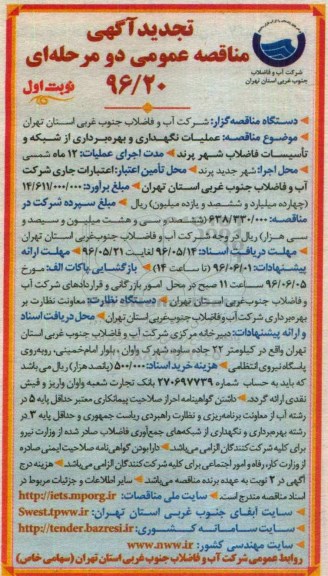 تجدید آگهی
مناقصه عمومی دو مرحله‌ای
۹۶/۲۰
نوبت اول
شرکت آب و فاضلاب
جنوب غربی استان تهران
دستگاه مناقصه‌گزار: شرکت آب و فاضلاب جنوب غربی استان تهران
موضوع مناقصه: عملیات نگهداری و بهره‌برداری از شبکه و
تأسیسات فاضلاب شهر پرند مدت اجرای عملیات: ۱۲ ماه شمسی
محل اجرا: شهر جدید پرند محل تأمین اعتبار: اعتبارات جاری شرکت
آب و فاضلاب جنوب غربی استان تهران مبلغ برآورد: ۱۴/۶۱۱/۰۰۰/۰۰۰
(چهارده میلیارد و ششصد و یازده میلیون) ریال مبلغ سپرده شرکت در
مناقصه: ۶۳۸/۳۳۰/۰۰۰ (ششصد و سی و هشت میلیون و سیصد و
سی هزار) ریال در وجه شرکت آب و فاضلاب جنوب‌غربی استان تهران
مهلت دریافت اسناد: ۹۶/۰۵/۱۴ لغایت ۹۶/۰۵/۲۱ مهلت ارائه
پیشنهادات: ۹۶/۰۶/۰۱ (تا ساعت ۱۴) بازگشایی پاکات الف: مورخ
۹۶/۰۶/۰۵ ساعت ۱۱ صبح در محل امور بازرگانی و قراردادهای شرکت آب
و فاضلاب جنوب غربی استان تهران دستگاه نظارت: معاونت نظارت بر
بهره‌برداری شرکت آب و فاضلاب جنوب‌غربی استان تهران محل دریافت اسناد
و ارائه پیشنهادات: دبیرخانه مرکزی شرکت آب و فاضلاب جنوب غربی استان
تهران واقع در کیلومتر ۲۲ جاده ساوه، شهرک واوان، بلوار امام‌خمینی، روبه‌روی
پاسگاه نیروی انتظامی هزینه خرید اسناد: ۵۰۰/۰۰۰ (پانصد هزار) ریال می‌باشد
که باید به حساب شماره ۲۷۰۶۹۷۷۳۹ بانک تجارت شعبه واوان واریز و فیش
نقدی ارائه گردد. داشتن گواهینامه احراز صلاحیت پیمانکاری معتبر حداقل پایه ۵ در
رشته آب از معاونت برنامه‌ریزی و نظارت راهبردی ریاست جمهوری و حداقل پایه ۳ در
رشته بهره‌برداری و نگهداری از شبکه‌های جمع‌آوری فاضلاب صادر شده از وزارت نیرو
برای کلیه شرکت‌کنندگان الزامی می‌باشد. دارا بودن گواهی‌نامه صلاحیت ایمنی صادره
از وزارت کار، رفاه و امور اجتماعی برای کلیه شرکت‌کنندگان الزامی می‌باشد. هزینه درج
آگهی در ۲ نوبت به عهده برنده مناقصه می‌باشد. سایر اطلاعات و جزئیات مربوط در
اسناد مناقصه مندرج است. سایت ملی مناقصات: http://iets.mporg.ir
سایت آبفای جنوب غربی استان تهران: Swest.tpww.ir
سایت سامانه کشوری: http://tender.bazresi.ir
سایت مهندسی کشور: www.nww.ir
روابط عمومی شرکت آب و فاضلاب جنوب غربی استان تهران (سهامی خاص)